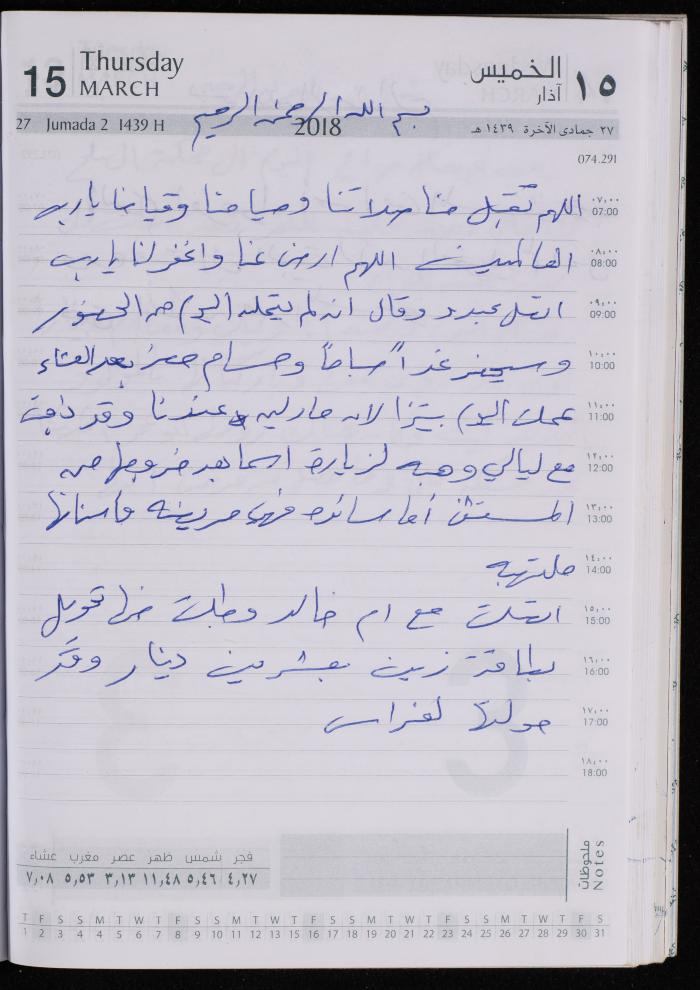 15 Thursday MARCH الخميس آذار ١٥
بسم الله الرحمن الرحيم
27 Jumada 2 1439 H 2018 ٢٧ جمادى الآخرة ١٤٣٩ هـ
074.291
اللهم تقبل منا صلاتنا وصيامنا وقيامنا يا رب ٠٧,٠٠ 07:00
العالمين اللهم ارض عنا واغفر لنا يا رب ٠٨,٠٠ 08:00
اتصل عبد وقال انه لم يتمكن اليوم من الحضور ٠٩,٠٠ 09:00
وسيحضر غداً صباحاً وحسام حضر بعد العشاء ١٠,٠٠ 10:00
عملت اليوم بيتزا لان مارلين عندنا وقد ذهبت ١١,٠٠ 11:00
مع ليالي وهبه لزيارة اسما بعد خروجها من ١٢,٠٠ 12:00
المستشفى أما سائده فهي مريضه واسنانها ١٣,٠٠ 13:00
ملتهبه ١٤,٠٠ 14:00
اتصلت مع ام خالد وطلبت منها تحويل ١٥,٠٠ 15:00
بطاقة زين بعشرين دينار وقد ١٦,٠٠ 16:00
حولتها لفراس ١٧,٠٠ 17:00
١٨,٠٠ 18:00
فجر شمس ظهر عصر مغرب عشاء
٤,٢٧ ٥,٤٦ ١١,٤٨ ٣,١٣ ٥,٥٣ ٧,٠٨
ملحوظات Notes
T F S S M T W T F S S M T W T F S S M T W T F S S M T W T F S
1 2 3 4 5 6 7 8 9 10 11 12 13 14 15 16 17 18 19 20 21 22 23 24 25 26 27 28 29 30 31